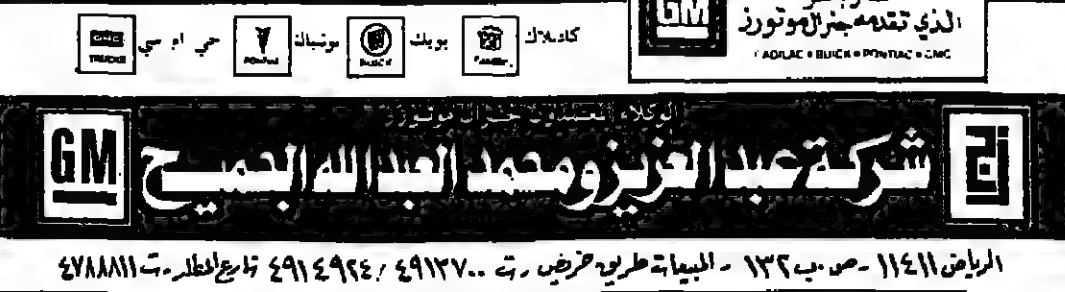 الذي تقدمه جنرال موتورز
CADILLAC • BUICK • PONTIAC • GMC
GM
كاديلاك
بويك BUICK
بونتياك PONTIAC
جي ام سي GMC TRUCKS
الوكلاء المعتمدون جنرال موتورز
شركة عبد العزيز ومحمد العبد الله الجميح
GM
الرياض ١١٤١١ - ص.ب ١٣٢ - المبيعات طريق خريص - ت ٤٩١٣٧٠٠ / ٤٩١٤٩٢٤ شارع المطار - ت ٤٧٨٨٨١١